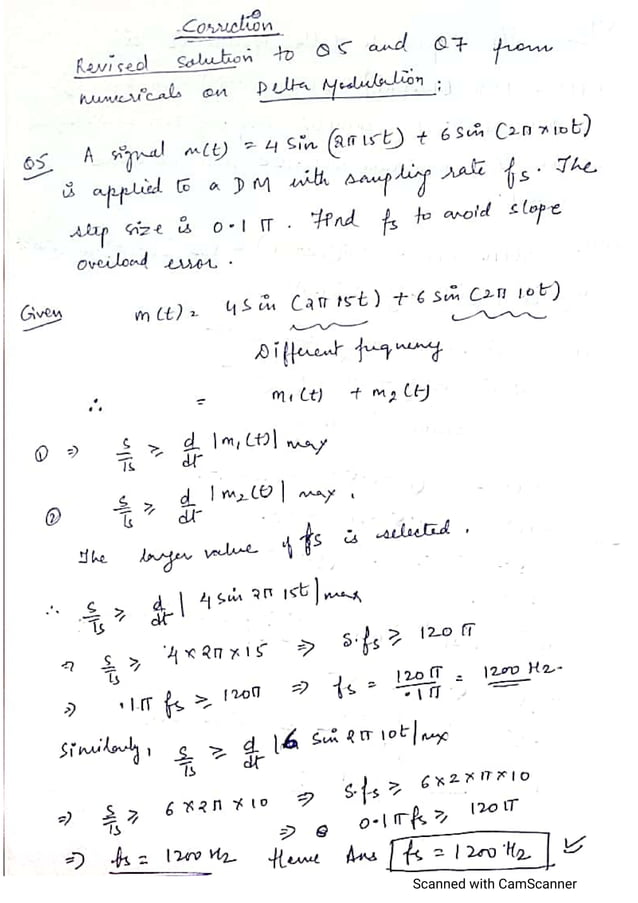 Correction
Revised Solution to Q5 and Q7 from
numericals on Delta Modulation :
Q5 A signal m(t) = 4 Sin (2π15t) + 6 Sin (2π×10t)
is applied to a DM with sampling rate fs. The
step size is 0.1 π. Find fs to avoid slope
overload error.
Given m(t) = 4 Sin (2π 15t) + 6 Sin (2π 10t)
Different frequency
∴ = m1(t) + m2(t)
① ⇒ S/Ts ≥ d/dt |m1(t)| max
② S/Ts ≥ d/dt |m2(t)| max.
The larger value of fs is selected.
∴ S/Ts ≥ d/dt | 4 sin 2π 15t | max
⇒ S/Ts ≥ 4×2π×15 ⇒ S.fs ≥ 120 π
⇒ .1π fs ≥ 120π ⇒ fs = 120π/.1π = 1200 Hz.
Similarly, S/Ts ≥ d/dt |6 Sin 2π 10t| max
⇒ S/Ts ≥ 6×2π×10 ⇒ S.fs ≥ 6×2×π×10
⇒ 0.1πfs ≥ 120π
⇒ fs = 1200 Hz Hence Ans fs = 1200 Hz
Scanned with CamScanner